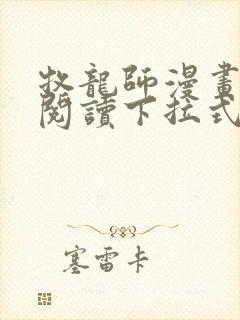 牧龍師漫畫
閱讀下拉式
塞雷卡